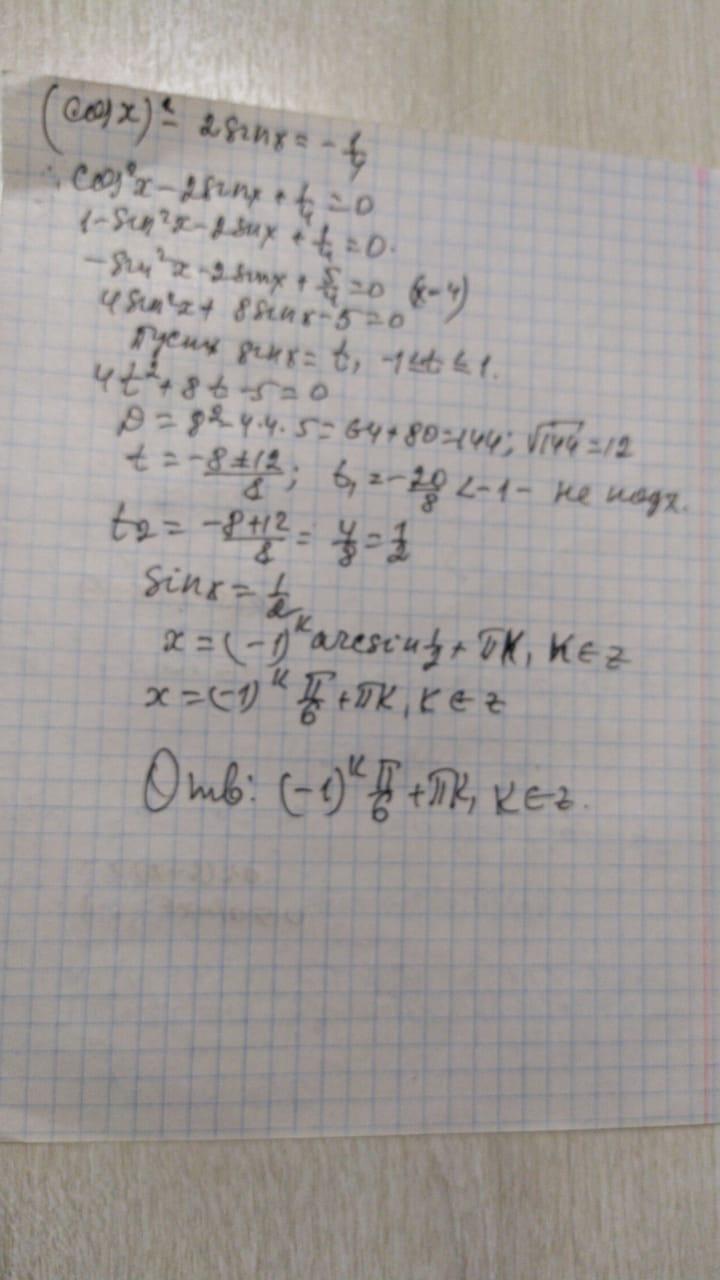 (cosx)² - 2sinx = - 1/4
cos²x - 2sinx + 1/4 = 0
1 - sin²x - 2sinx + 1/4 = 0.
- sin²x - 2sinx + 5/4 = 0 (x-4)
4sin²x + 8sinx - 5 = 0
Пусть sinx = t, -1 ≤ t ≤ 1.
4t² + 8t - 5 = 0
D = 8² - 4·4·5 = 64 + 80 = 144; √144 = 12
t = (-8 ± 12)/8; t₁ = - 20/8 < -1 - не подх.
t₂ = (-8 + 12)/8 = 4/8 = 1/2
sinx = 1/2
x = (-1)ᴷ arcsin 1/2 + πK, K ∈ Z
x = (-1)ᴷ π/6 + πK, K ∈ Z
Отв: (-1)ᴷ π/6 + πK, K ∈ Z.